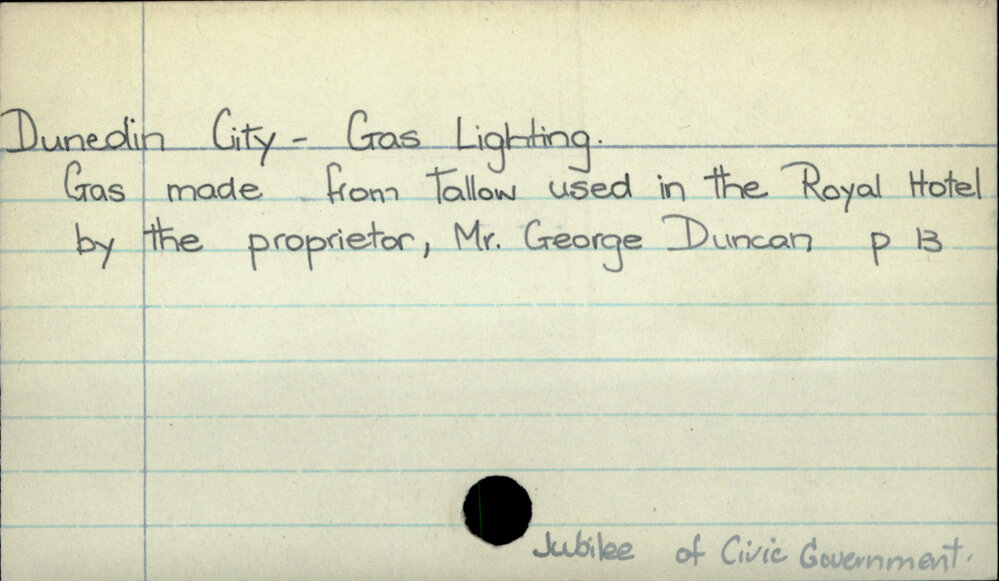 Dunedin City - Gas Lighting.
Gas made from Tallow used in the Royal Hotel
by the proprietor, Mr. George Duncan p 13
Jubilee of Civic Government.